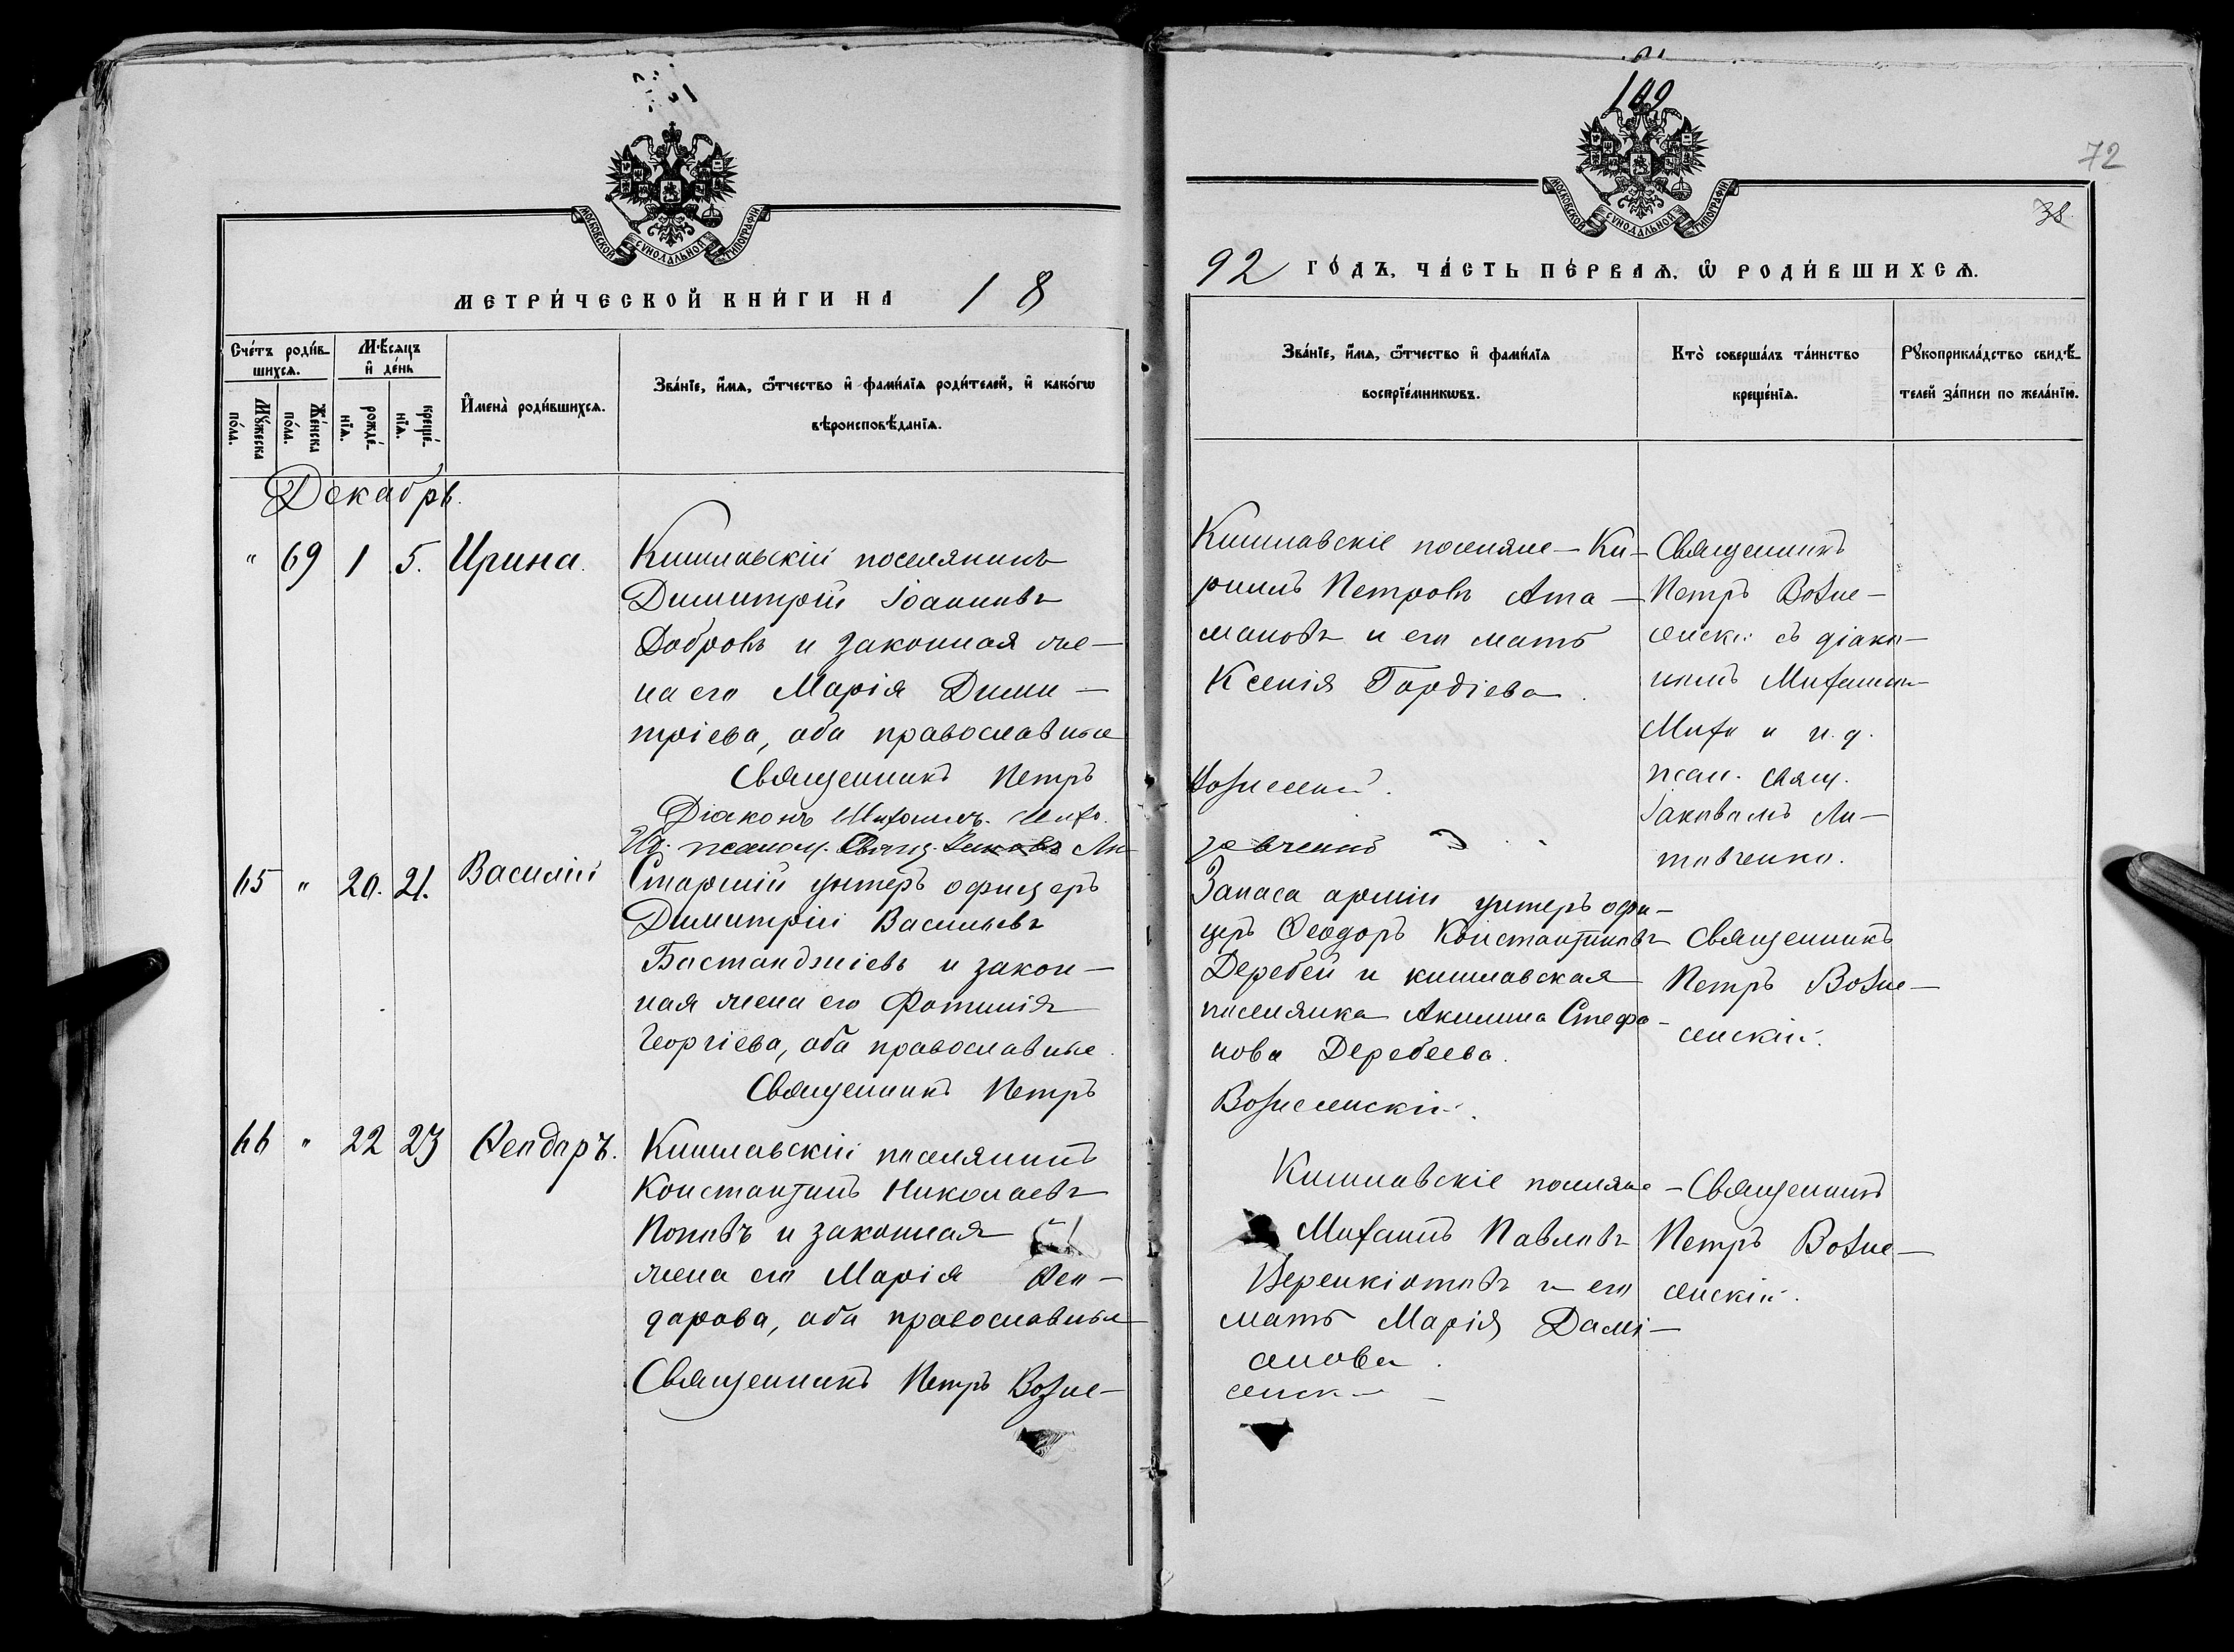 109
72
38
МОСКОВСКОЙ СѴНОДАЛЬНОЙ ТИПОГРАФІИ
МОСКОВСКОЙ СѴНОДАЛЬНОЙ ТИПОГРАФІИ
МЕТРИ́ЧЕСКОЙ КНИ́ГИ НА 18
92 ГО́ДЪ, ЧА́СТЬ ПЕ́РВАѦ, Ѽ РОДИ́ВШИХСѦ.
Сче́тъ роди́в-
шихсѧ.
Мꙋ́жеска
по́ла.
Же́нска
по́ла.
Мѣ́сѧцъ
и҆ де́нь
рожде́-
нїѧ.
креще́-
нїѧ.
И҆мена̀ роди́вшихсѧ.
Зва́нїе, и҆́мѧ, ѻ҆́тчество и҆ фами́лїѧ роди́телей, и҆ како́гѡ
вѣроисповѣ́данїѧ.
Зва́нїе, и҆́мѧ, ѻ҆́тчество и҆ фами́лїѧ
воспрїе́мникѡвъ.
Кто̀ соверша́лъ та́инство
креще́нїѧ.
Рꙋкоприкла́дство свидѣ́-
телей за́писи по жела́нїю.
Декабрь.
" 69 1 5. Ирина.
Кишлавскій поселянинъ
Димитрій Іоанновъ
Добровъ и законная же-
на его Марія Дими-
тріева, оба православные
Священникъ Петръ
Діаконъ Михаилъ Михо.
Ид. псалом. Свящ. Ли-
Кишлавскіе поселяне - Ки-
риллъ Петровъ Ата-
мановъ и его мать
Ксенія Гордіева.
Вознесенскій.
Священникъ
Петръ Возне-
сенскій съ діако-
номъ Михаиломъ
Михо и и. д.
псал. свящ.
Іаковомъ Ли-
товченко.
65 " 20. 21. Василій
Старшій унтеръ офицеръ
Димитрій Васильевъ
Бостанджіевъ и закон-
ная жена его Фотинія
Георгіева, оба православные.
Священникъ Петръ
Запаса арміи унтеръ офи-
церъ Ѳеодоръ Константиновъ
Деребей и кишлавская
поселянка Акилина Стефа-
нова Деребеева.
Вознесенскій.
Священникъ
Петръ Возне-
сенскій.
66 " 22 23 Ѳеодоръ.
Кишлавскій поселянинъ
Константинъ Николаевъ
Поповъ и законная
жена его Марія Ѳео-
дорова, оба православные
Священникъ Петръ Возне-
Кишлавскіе поселяне
Михаилъ Павловъ
и его
мать Марія Дамі-
анова.
сенскій
- Священникъ
Петръ Возне-
сенскій.